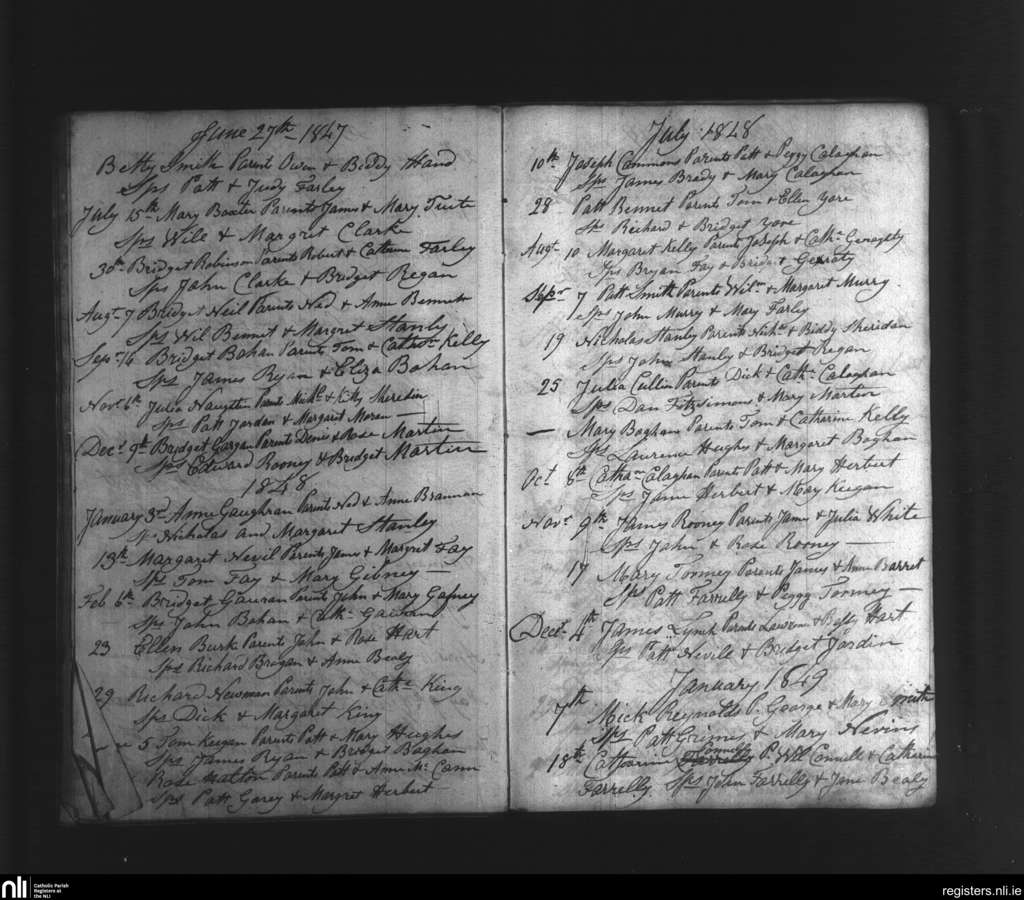 June 27th 1847
Betty Smith Parent Owen & Biddy Hand
Sps Patt & Judy Farley
July 15th Mary Baxter Parents James & Mary Tuite
Sps Wile & Margret Clarke
30th Bridget Robinson Parents Robert & Catherine Farley
Sps John Clarke & Bridget Regan
Augt 7 Bridget Neil Parents Ned & Anne Bennett
Sps Wil Bennet & Margret Stanly
Sepr 14 Bridget Bohan Parents Tom & Kelly
Sps James Ryan & Eliza Bohan
Novr 6th Julia Naughten Parents Michl & Kitty Sheredin
Sps Patt Jordan & Margaret Moran
Decr 9th Bridget Gargan Parents Denis & Rose Martin
Sps Edward Rooney & Bridget Martin
1848
January 3rd Anne Gaughran Parents Ned & Anne Brannan
Nicholas and Margaret Stanley
13th Margaret Nevil Parents James & Margret Fay
Sps Tom Fay & Mary Gibney
Feb 6th Bridget Gauran Parents John & Mary Gafney
Sps John Bohan & Cath Gauran
23 Ellen Burk Parents John & Rose Hart
Sps Richard Brogan & Anne Bealy
29 Richard Newman Parents John & Cathe King
Sps Dick & Margaret King
5 Tom Keegan Parents Patt & Mary Hughes
Sps James Ryan & Bridget Baghan
Rose Parents Patt & Anne Mc Cann
Sps Patt Garey & Margret Herbert
July 1848
10th Joseph Commons Parents Patt & Peggy Calaghan
Sps James Brady & Mary Calaghan
28 Patt Bennet Parents Tom & Ellen Yore
Sps Richard & Bridget Yore
Augt 10 Margaret Kelly Parents Joseph & Cathn Geraghty
Sps Bryan Fay & Bridget Geraty
Sepr 7 Patt Smith Parents Wilm & Margaret Murry
Sps John Murry & Mary Farley
19 Nicholas Stanly Parents Nichs & Biddy Sheridan
Sps John Stanly & Bridget Regan
25 Julia Cullin Parents Dick & Cathn Calaghan
Sps Dan Fitzsimons & Mary Martin
— Mary Baghan Parents Tom & Catharine Kelly
Sps Laurence Hughes & Margaret Baghan
Oct 8th Catharn Calaghan Parents Patt & Mary Herbert
Sps Jane Herbert & Mary Keegan
Novr 9th James Rooney Parents James & Julia White
Sps John & Rose Rooney
17 Mary Toomey Parents James & Anne Barret
Sps Patt Farrelly & Peggy Toomey
Decr 4th James Lynch Parents Lawrence & Hart
Sps Patt Nevile & Bridget Jordin
January 1849
7th Mick Reynolds P. George & Mary Smith
Sps Patt Grimes & Mary Nevins
Connell
18th Catharine Farrelly P. Will Connell & Catherin
Farrelly. Sps John Farrelly & Jane Bealy
nli
Catholic Parish
Registers at
the NLI
registers.nli.ie